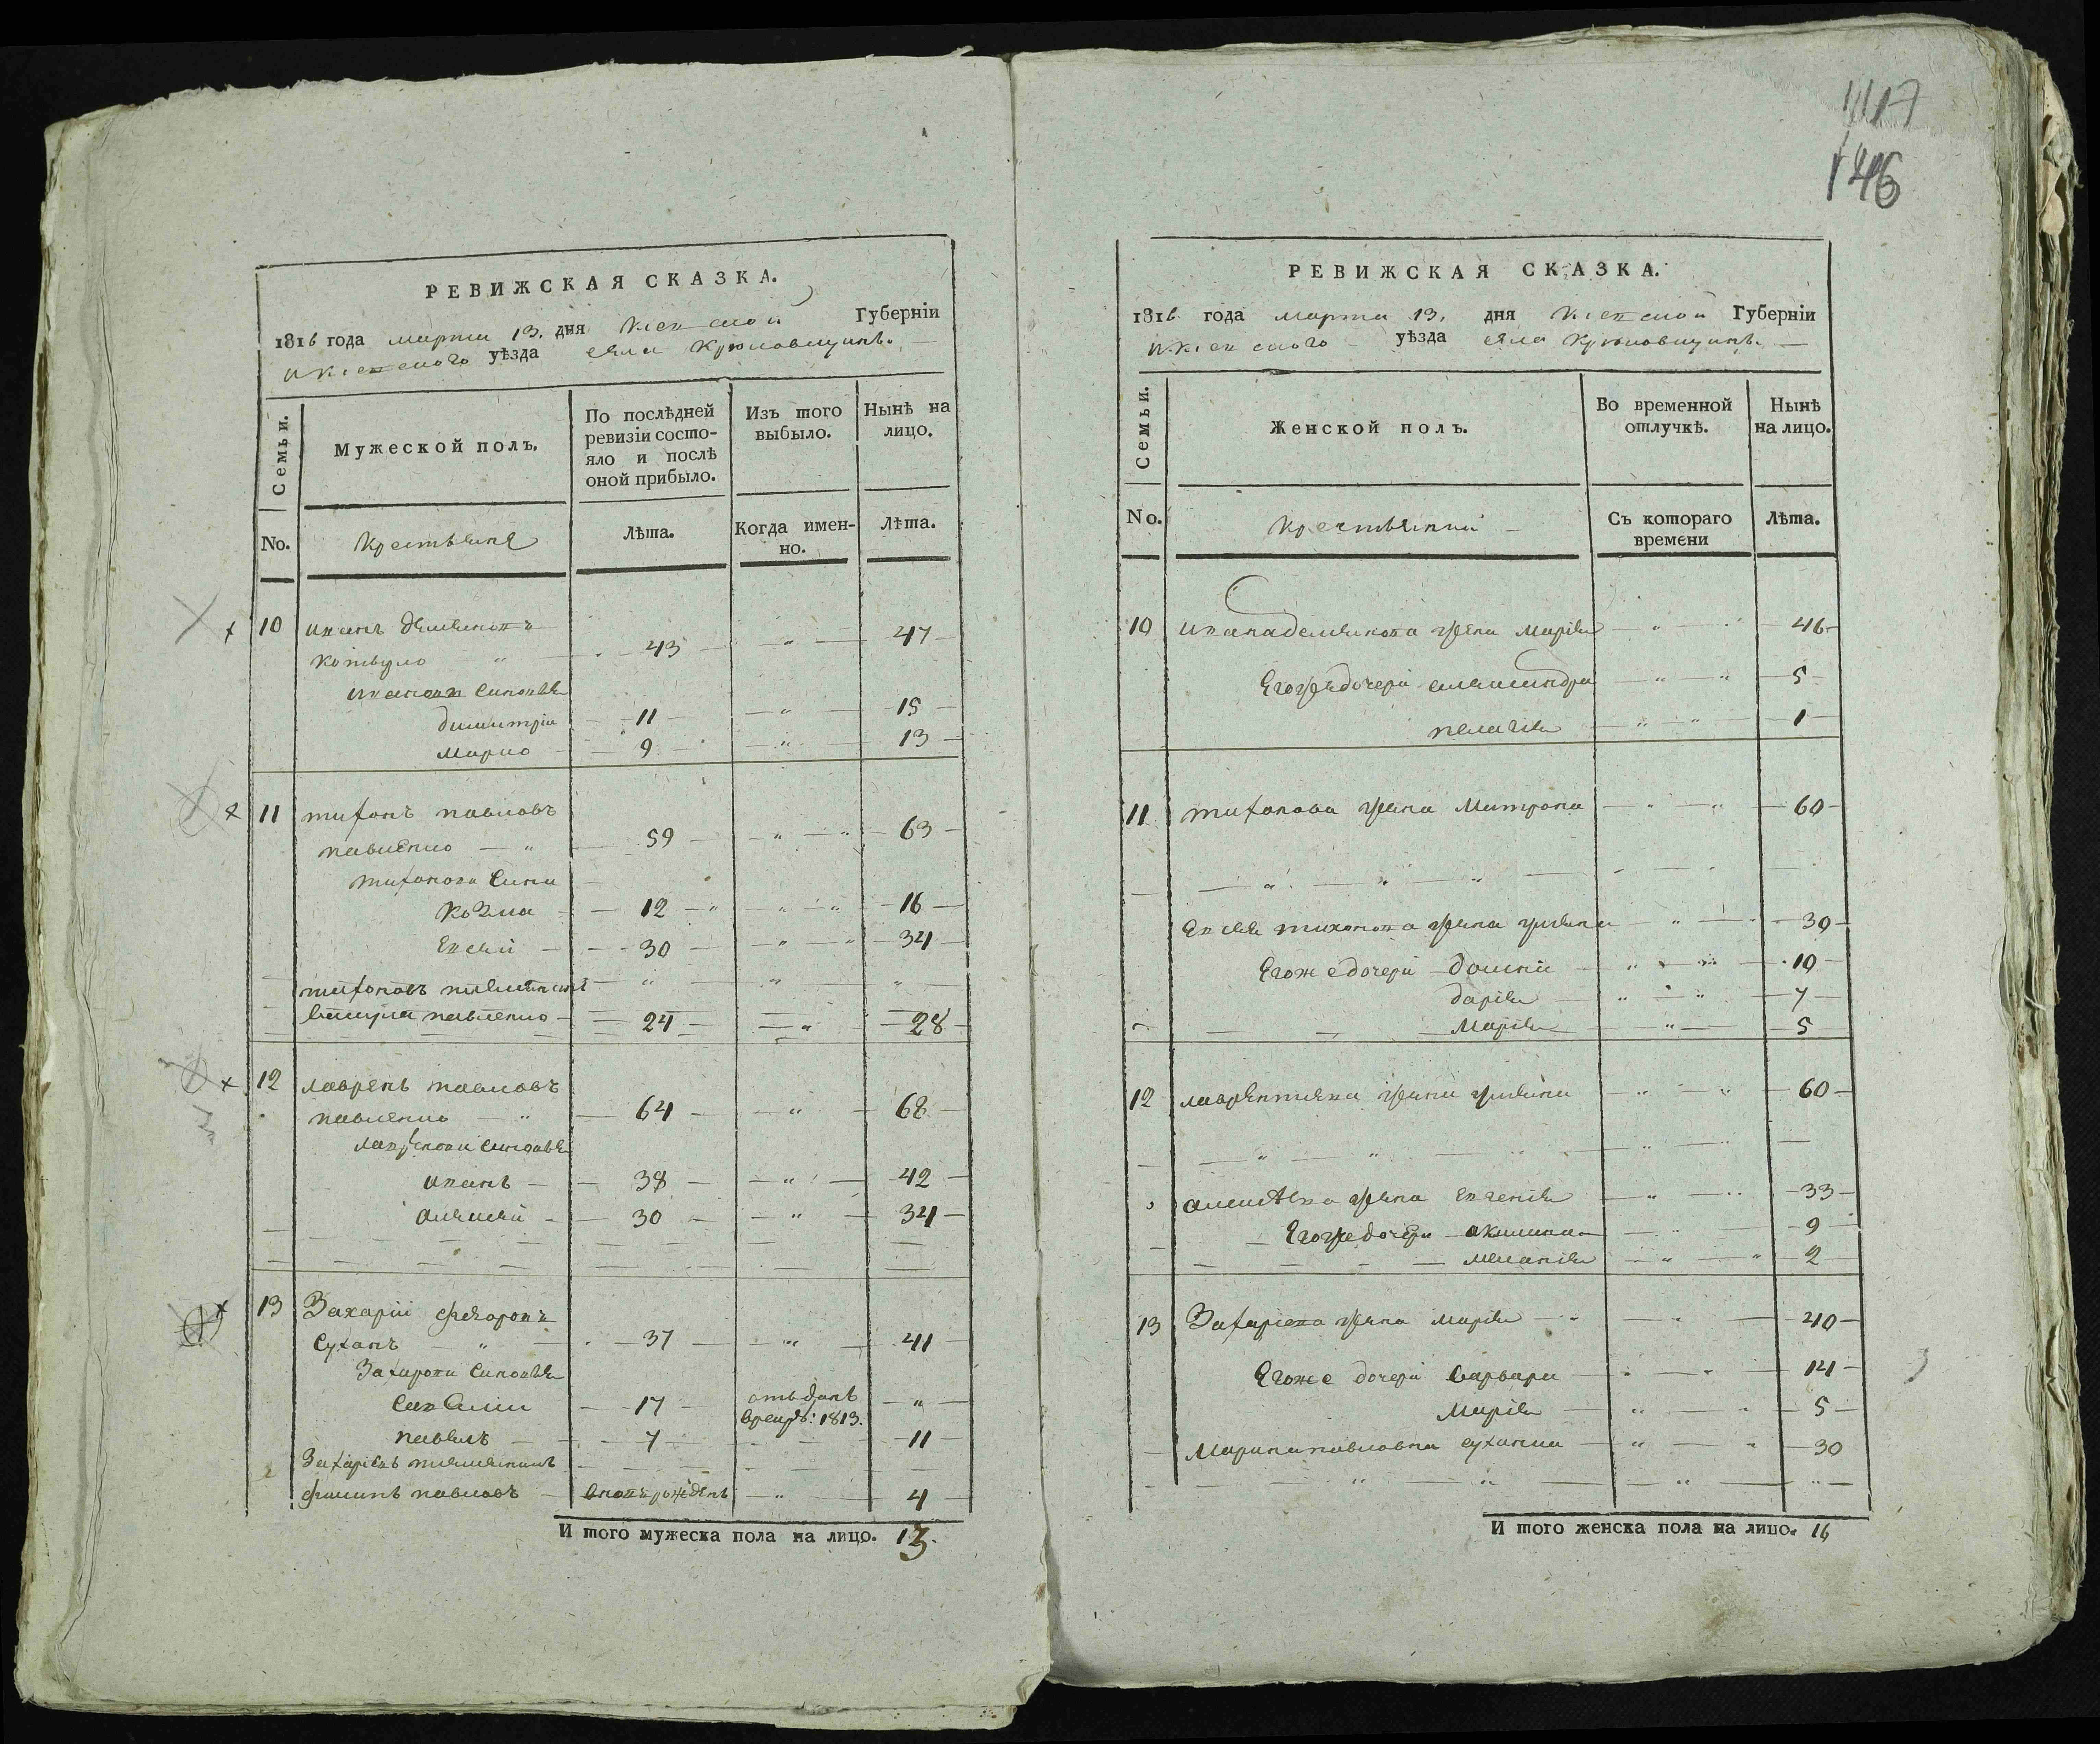 РЕВИЖСКАЯ СКАЗКА.
1816 года марта 13. дня Кіевской Губерніи
и Кіевского уѣзда села Крюковщинѣ.
Семьи.
Мужеской полъ.
По послѣдней ревизіи состо-
яло и послѣ
оной прибыло.
Изъ того
выбыло.
Нынѣ на
лицо.
No.
Крестьяне
Лѣта.
Когда имен-
но.
Лѣта.
10 Иванъ Демяновъ
Котвуло 43 47
Ивановы Синовья
Димитрій 11 15
Марко 9 13
11 тихонъ павловъ
павленко 59 63
тихонови Сини
Козма 12 16
Евсей 30 34
тихоновъ племяникъ
павленко 24 28
12 лаврѣнъ павловъ
павленко 64 68
Синовья
Иванъ 38 42
Алексей 30 34
13 Захарій Федоровъ
Суханъ 37 41
Захарови Синовья
17 отъданъ
врекр: 1813.
павелъ 7 11
Захаріевъ племянникъ
филипъ павловъ вновърожденъ 4
И того мужеска пола на лицо. 13.
1117
146
РЕВИЖСКАЯ СКАЗКА.
1816 года марта 13. дня Кіевской Губерніи
и Кіевского уѣзда села Крюковщинѣ.
Семьи.
Женской полъ.
Во временной
отлучкѣ.
Нынѣ
на лицо.
No.
Крестьянки
Съ котораго
времени
Лѣта.
10 Иванадемянова жена Марія 46
Егожедочери александра 5
пелагія 1
11 тихонова жена Матрона 60
Евсея тихонова жена уляна 30
Егоже дочери домнія 10
дарія 7
Марія 5
12 лаврентиева жена уляна 60
алексѣева жена Евгенія 33
Егоже дочери акилина 9
меланія 2
13 Захаріева жена Марія 40
Егоже дочери варвара 14
Марія 5
Марина павловна 30
И того женска пола на лицо. 16